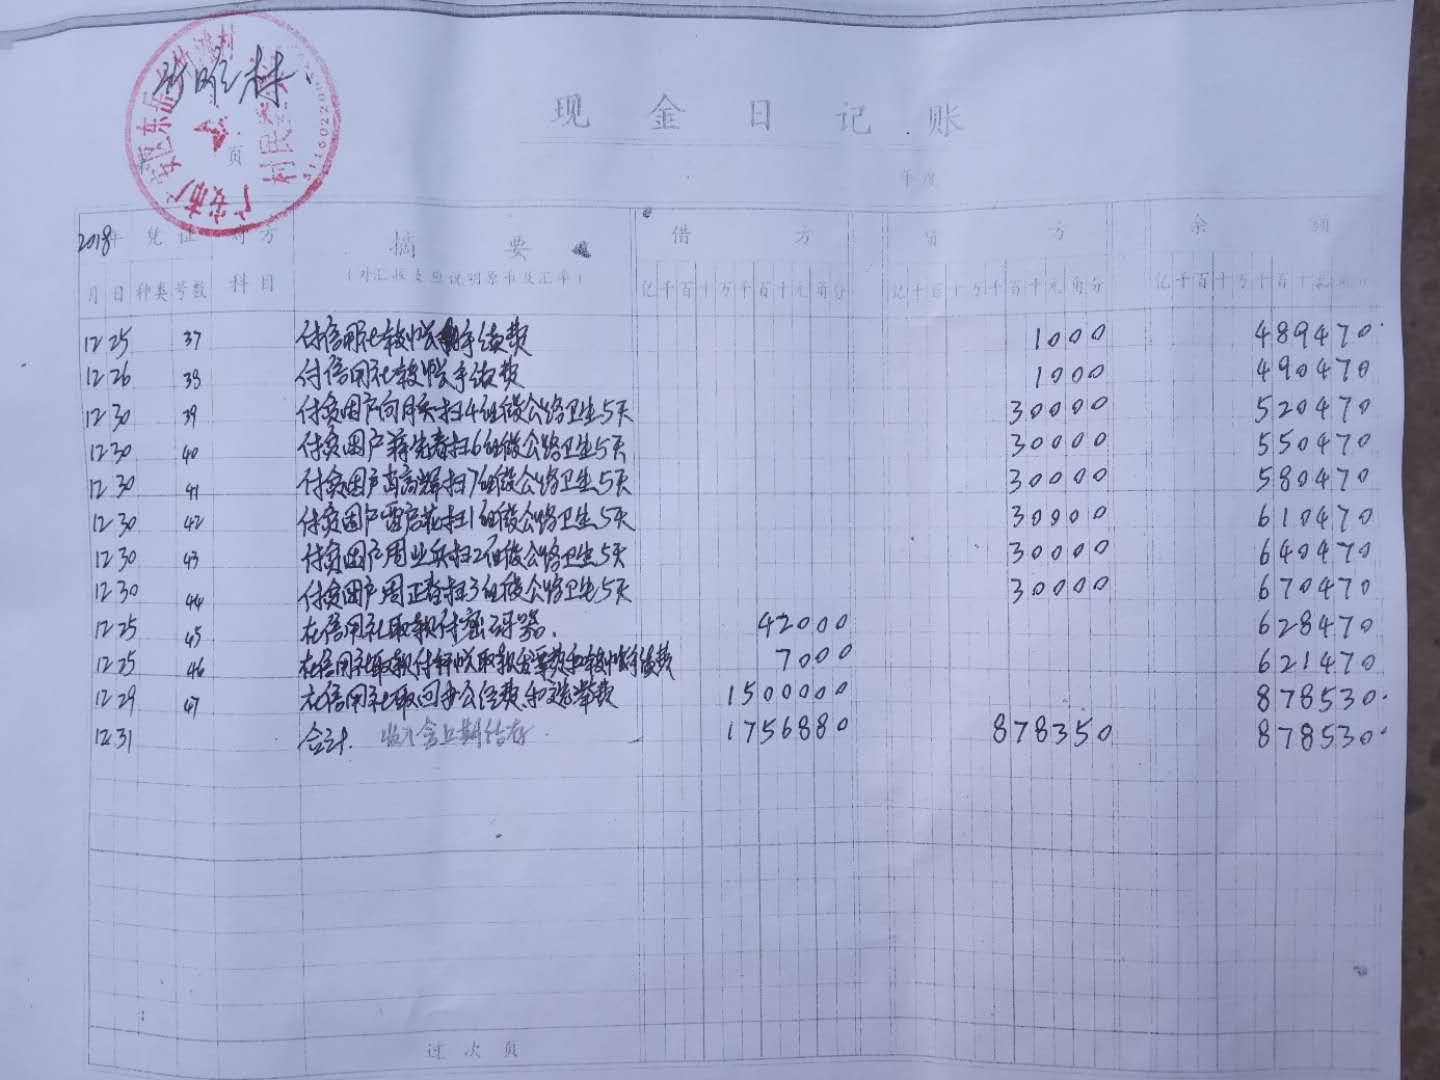 现金日记账
年度
页
2018年 凭证 对方 摘要 借方 贷方 余额
月 日 种类 号数 科目 (外汇收支应说明原币及汇率) 亿千百十万千百十元角分 亿千百十万千百十元角分 亿千百十万千百十元角分
12 25 37 付信用社转帐手续费 1000 489470
12 26 38 付信用社转帐手续费 1000 490470
12 30 39 付贫困户向月 扫4组段公路卫生5天 30000 520470
12 30 40 付贫困户蒋先春扫6组段公路卫生5天 30000 550470
12 30 41 付贫困户 高辉扫7组段公路卫生5天 30000 580470
12 30 42 付贫困户雷启花扫1组段公路卫生5天 30000 610470
12 30 43 付贫困户周业兵扫2组段公路卫生5天 30000 640470
12 30 44 付贫困户周正春扫3组段公路卫生5天 30000 670470
12 25 45 在信用社取款付密码器. 42000 628470
12 25 46 在信用社取款付 帐取款 和转帐手续费 7000 621470
12 29 47 在信用社取回办公经费和选举费 1500000 878530
12 31 合计. 收入含上期结存 1756880 878350 878530
过次页